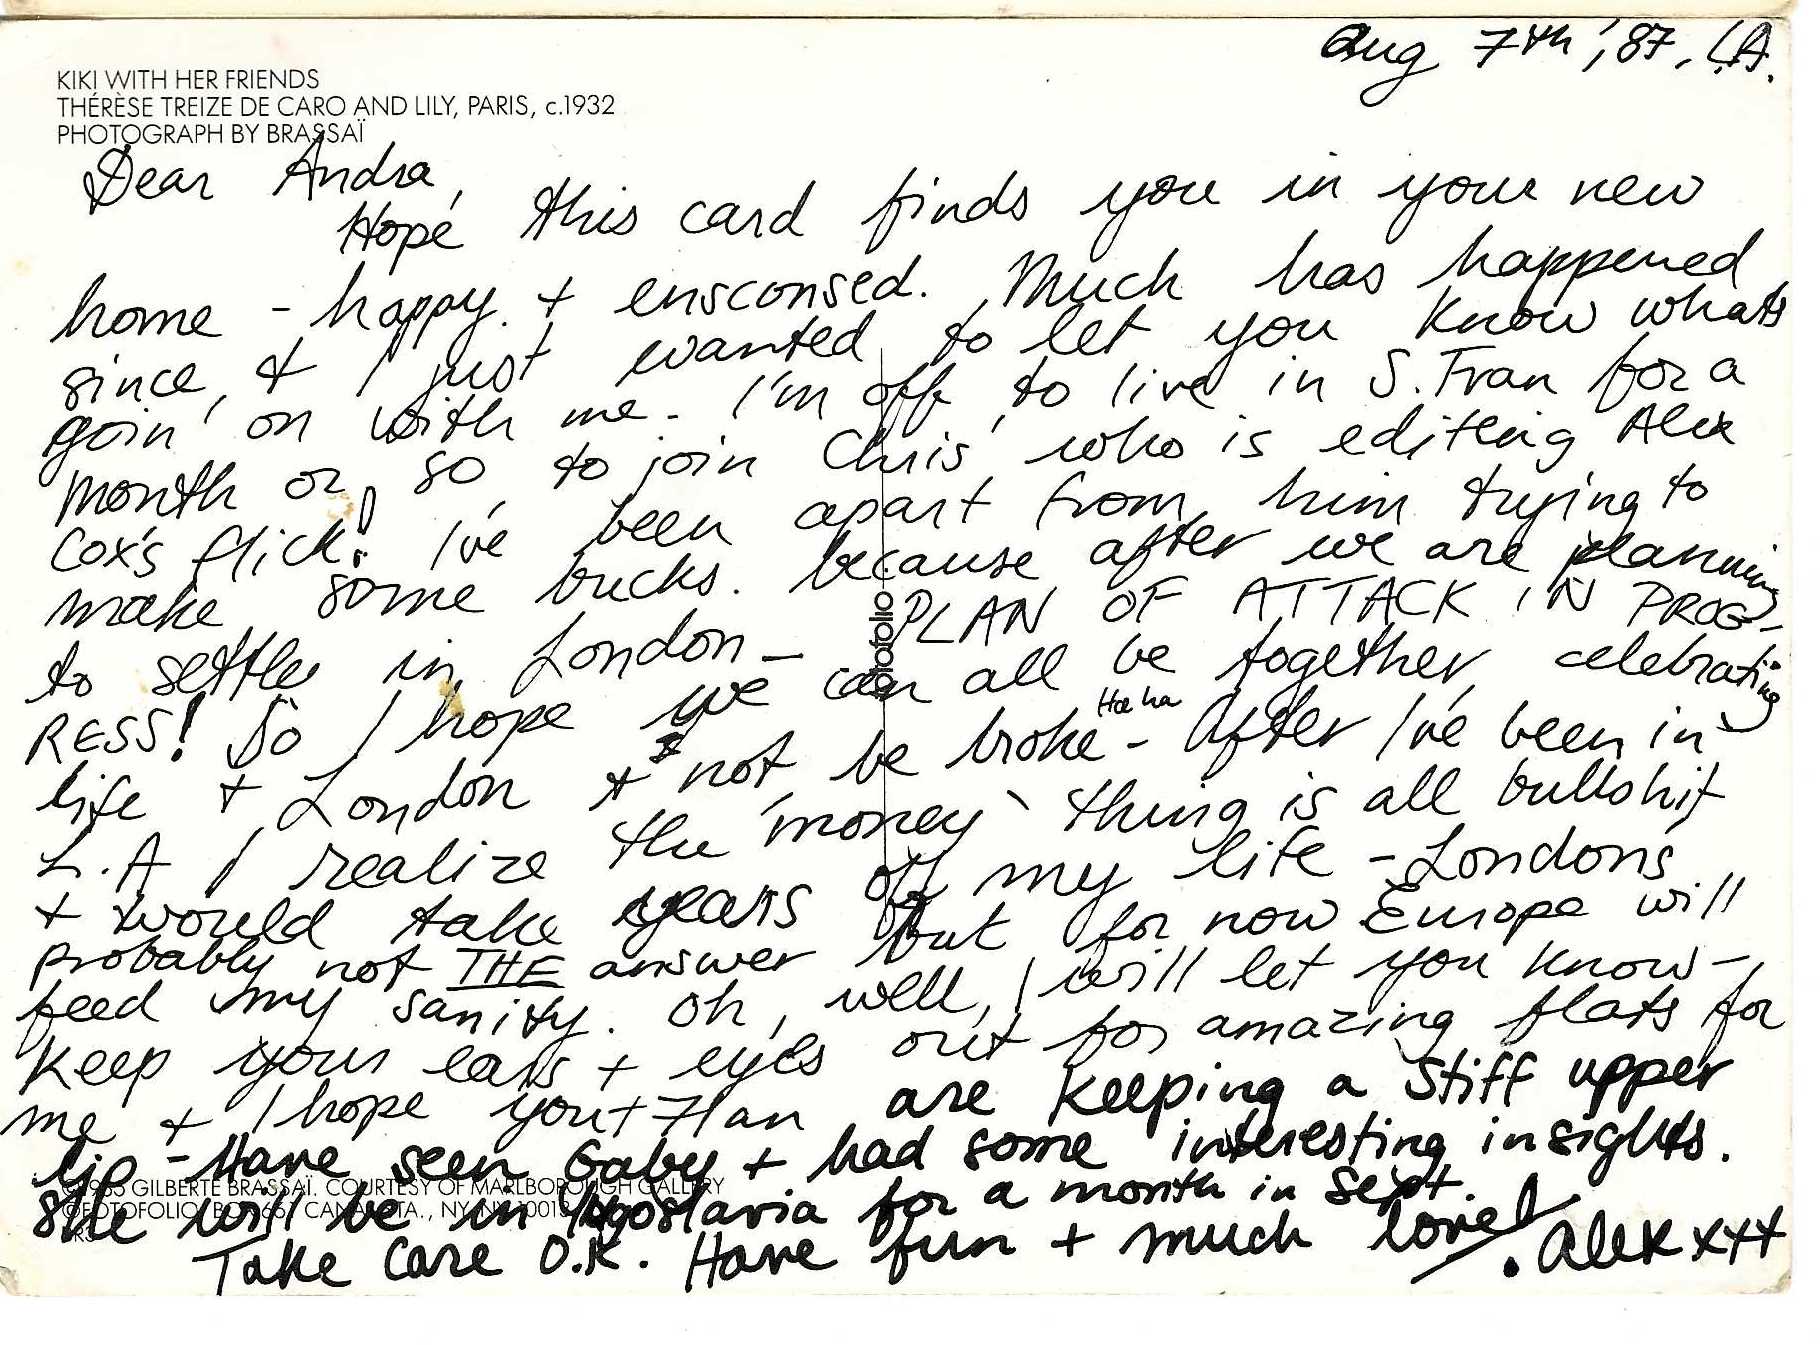 Aug 7th, '87, L.A.
KIKI WITH HER FRIENDS
THÉRÈSE TREIZE DE CARO AND LILY, PARIS, c.1932
PHOTOGRAPH BY BRASSAÏ
Dear Andra,
Hope this card finds you in your new
home - happy + ensconsed. Much has happened
since, + I just wanted to let you know whats
goin' on with me - I'm off to live in S. Fran for a
month or so to join Chris who is editing Alex
Cox's flick! I've been apart from him trying to
make some bucks. because after we are planning
to settle in London - PLAN OF ATTACK IN PROG-
RESS! So I hope we can all be together, celebrating
life + London + not be broke - Ha ha After I've been in
L.A I realize the 'money' thing is all bullshit
+ would take years off my life - London's
probably not THE answer but for now Europe will
feed my sanity. Oh, well, I will let you know -
Keep your ears + eyes out for amazing flats for
me + I hope you + are keeping a stiff upper
lip - Have seen Gaby + had some interesting insights.
She will be in Yugoslavia for a month in Sept.
Take Care O.K. Have fun + much love! Alex xxx
fotofolio
© GILBERTE BRASSAÏ. COURTESY OF MARLBOROUGH GALLERY
FOTOFOLIO, BOX 661 CANAL STA., NY, NY 10013